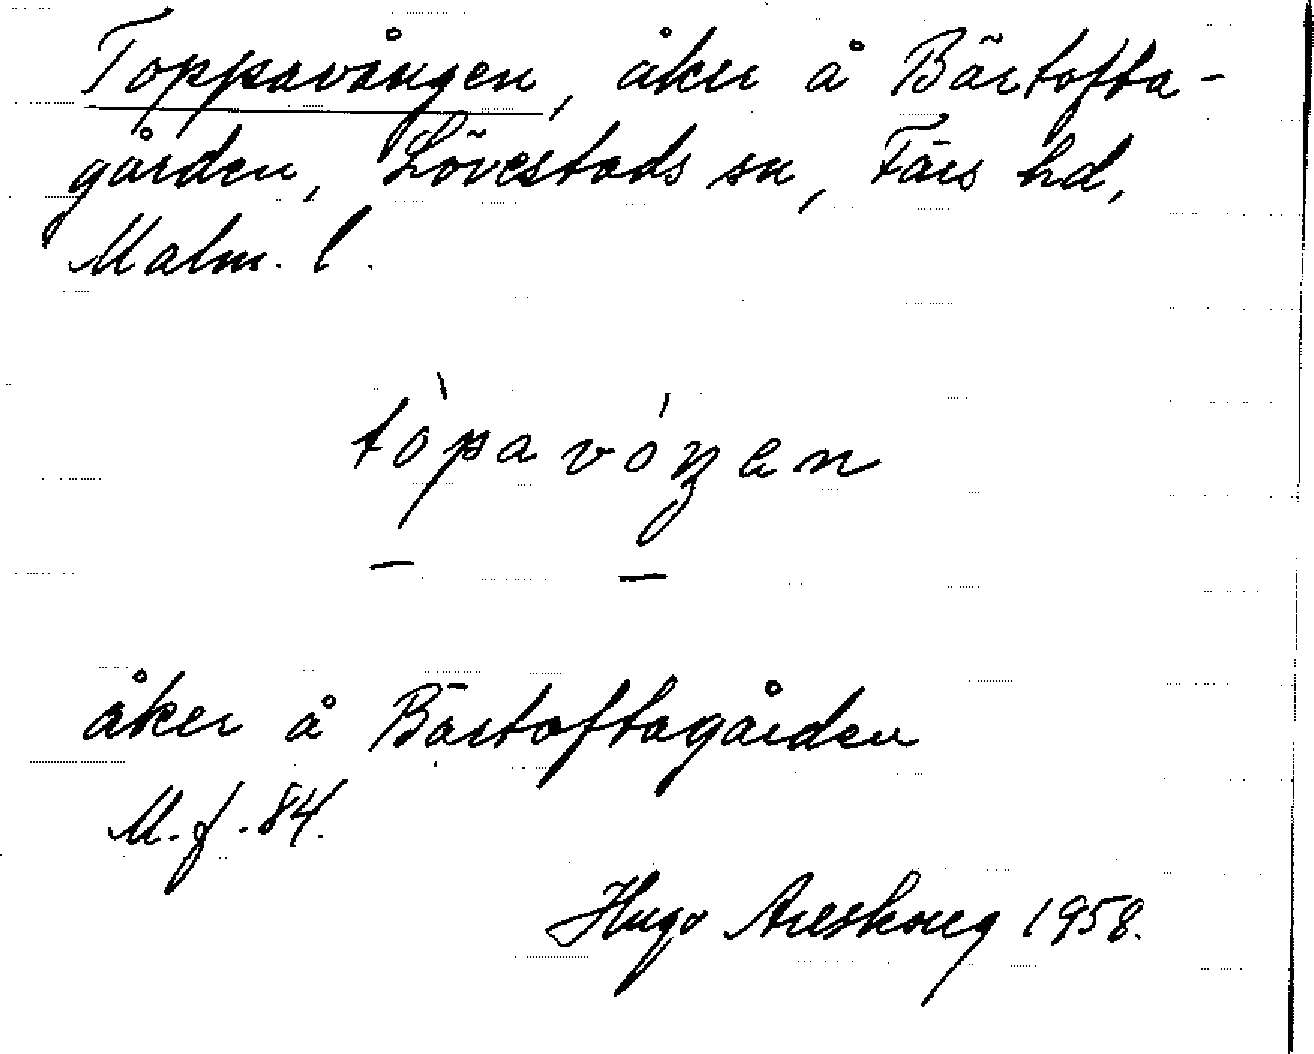 Toppavången, åker å Bärtofta-
gården, Lövestads sn, Färs hd,
Malm. l.
tòpavóŋen
åker å Bärtoftagården
M. f. 84.
Hugo Areskoug 1958.